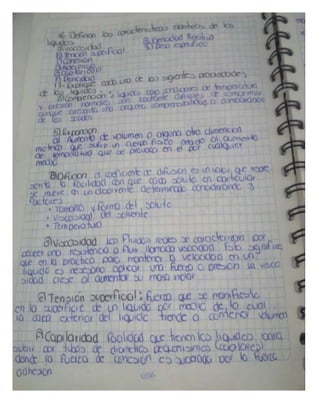 6. Definan las características elásticas de los
líquidos:
a) viscosidad g) Densidad Relativa
b) Tensión superficial h) Peso específico
c) cohesión
d) Adhesión
e) capilaridad
f) Densidad
7.- Explique cada una de las sigientes propiedades
de los liquidos:
a) comprención: liquidos bajo condiciones de temperatura
y presion normales son bastante dificiles de comprimir
aunque presenta una pequeña compresibilidad a comparacion
de los solidos
b) Expancion
al Aumento de volumen o alguna otra dimencion
metrica que sufre un cuerpo fisico debido al aumento
de temperatura que se provoca en el por cualquier
medio
c) Difucion el coeficiente de difusión es un valor que repre
senta la facilidad con que cada soluto en particular
se mueve en un disolvente determinado considerando 3
factores
• Tamaño y forma del soluto
• viscosidad del solvente
• Temperatura
d) Viscocidad los fluidos reales se caracterizan por
poseer una resistencia a fluir llamada viscosidad. Esto significa
que en la practica para mantener la velocidad en un
liquido es necesario aplicar una fuerza o presion la visco
sidad crese al aumentar su masa molar
e) Tensión superficial: fuerza que se manifiesta
en la superficie de un liquido por medio de la cual
la capa exterior del liquido tiende a contener volumen
f) Capilaridad facilidad que tienen los liquidos para
subir por tubos de diametros pequeñisimos (capilares)
donde la fuerza de cohesion es superada por la fuerza
adhesion